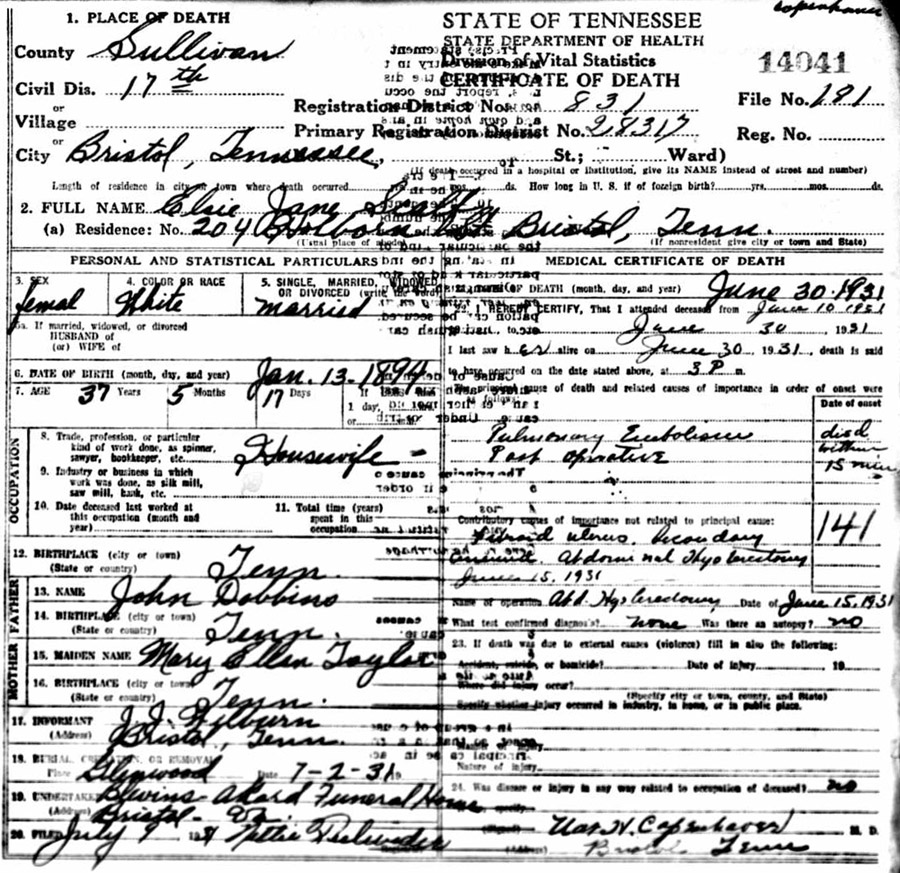 Copenhaver
1. PLACE OF DEATH
County Sullivan
Civil Dis. 17th
or
Village
or
City Bristol, Tennessee, St.; Ward)
STATE OF TENNESSEE
STATE DEPARTMENT OF HEALTH
Division of Vital Statistics
CERTIFICATE OF DEATH
14041
Registration District No. 831 File No. 181
Primary Registration District No. 28317 Reg. No.
(If death occurred in a hospital or institution, give its NAME instead of street and number)
Length of residence in city or town where death occurred yrs. mos. ds. How long in U. S. if of foreign birth? yrs. mos. ds.
2. FULL NAME Elsie Jane
(a) Residence: No. 204 Bristol, Tenn.
(Usual place of abode) (If nonresident give city or town and State)
PERSONAL AND STATISTICAL PARTICULARS
3. SEX 4. COLOR OR RACE 5. SINGLE, MARRIED, WIDOWED
OR DIVORCED (write the word)
femal White married
5a. If married, widowed, or divorced
HUSBAND of
(or) WIFE of
6. DATE OF BIRTH (month, day, and year) Jan. 13-1894
7. AGE 37 Years 5 Months 17 Days
1 day,
or
OCCUPATION
8. Trade, profession, or particular
kind of work done, as spinner,
sawyer, bookkeeper, etc. Housewife
9. Industry or business in which
work was done, as silk mill,
saw mill, bank, etc.
10. Date deceased last worked at
this occupation (month and
year)
11. Total time (years)
spent in this
occupation
12. BIRTHPLACE (city or town)
(State or country) Tenn.
FATHER
13. NAME John Dobbins
14. BIRTHPLACE (city or town)
(State or country) Tenn.
MOTHER
15. MAIDEN NAME Mary Ellen Taylor
16. BIRTHPLACE (city or town)
(State or country) Tenn.
17. INFORMANT J. J. Wilburn
(Address) Bristol, Tenn.
18. BURIAL, CREMATION, OR REMOVAL
Place Glenwood Date 7-2-31 19
19. UNDERTAKER Blevins-Akard Funeral Home
(Address) Bristol - Va
20. FILED July 9 1931
MEDICAL CERTIFICATE OF DEATH
21. DATE OF DEATH (month, day, and year) June 30. 1931
22. I HEREBY CERTIFY, That I attended deceased from June 10 1931
to June 30 1931
I last saw her alive on June 30 1931, death is said
to have occurred on the date stated above, at 3 P m.
The principal cause of death and related causes of importance in order of onset were
as follows:
Date of onset
Pulmonary Embolism died
Post operative within
15 min
Contributory causes of importance not related to principal cause:
141
Fibroid uterus. Secondary
Abdominal Hysterectomy
June 15, 1931
Name of operation Abd. Hysterectomy Date of June 15, 1931
What test confirmed diagnosis? none Was there an autopsy? no
23. If death was due to external causes (violence) fill in also the following:
Accident, suicide, or homicide? Date of injury 19
Where did injury occur?
(Specify city or town, county, and State)
Specify whether injury occurred in industry, in home, or in public place.
Manner of injury
Nature of injury
24. Was disease or injury in any way related to occupation of deceased? no
If so, specify
(Signed) Copenhaver M. D.
(Address) Bristol Tenn